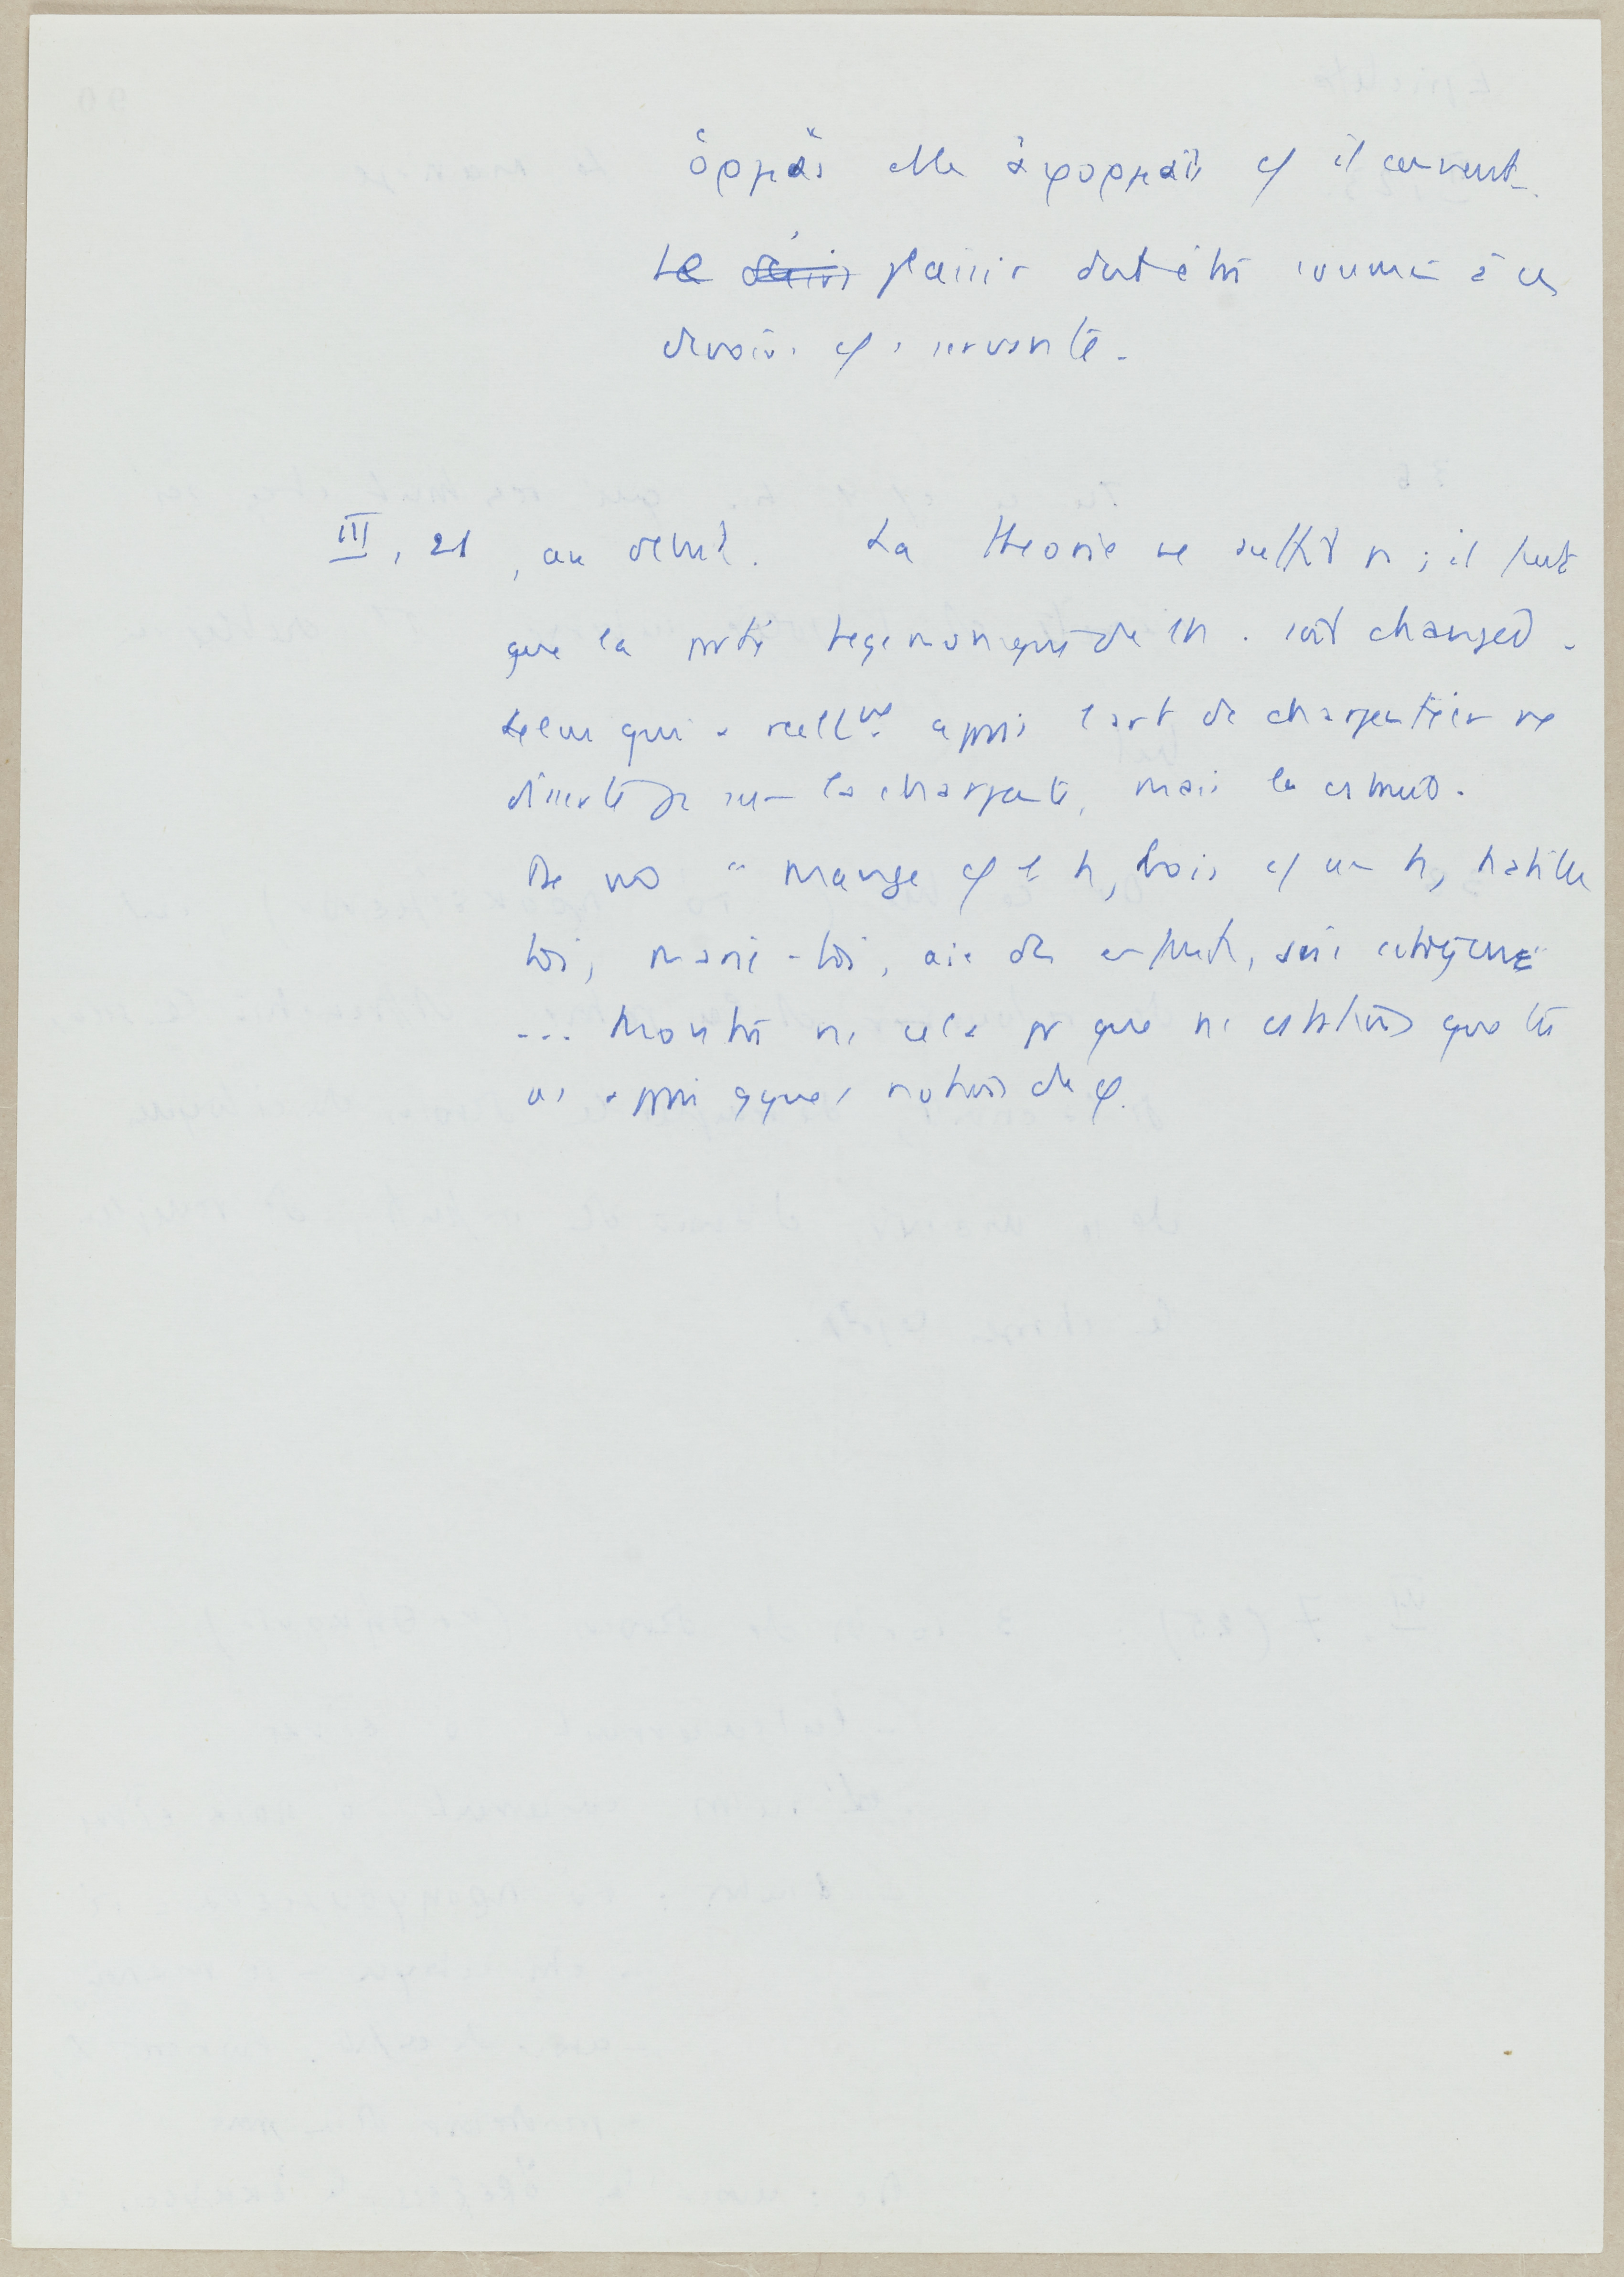 ὁρμάς et les ἀφορμάς cf il convient.
Le plaisir doit être soumis à ces
devoirs cf servante.
III, 21, au début. La théorie ne suffit p ; il faut
que la partie hegemonique de l'h. soit changée.
Celui qui a réellᵗ appris l'art de charpentier ne
sur la charpente, mais la construit.
De mê "mange cf 1 h, bois cf un h, habille
toi, marie-toi, aie des enfants, sois citoyen"
... Montre ns cela pr que ns constations que tu
as appris qques notions de φ.